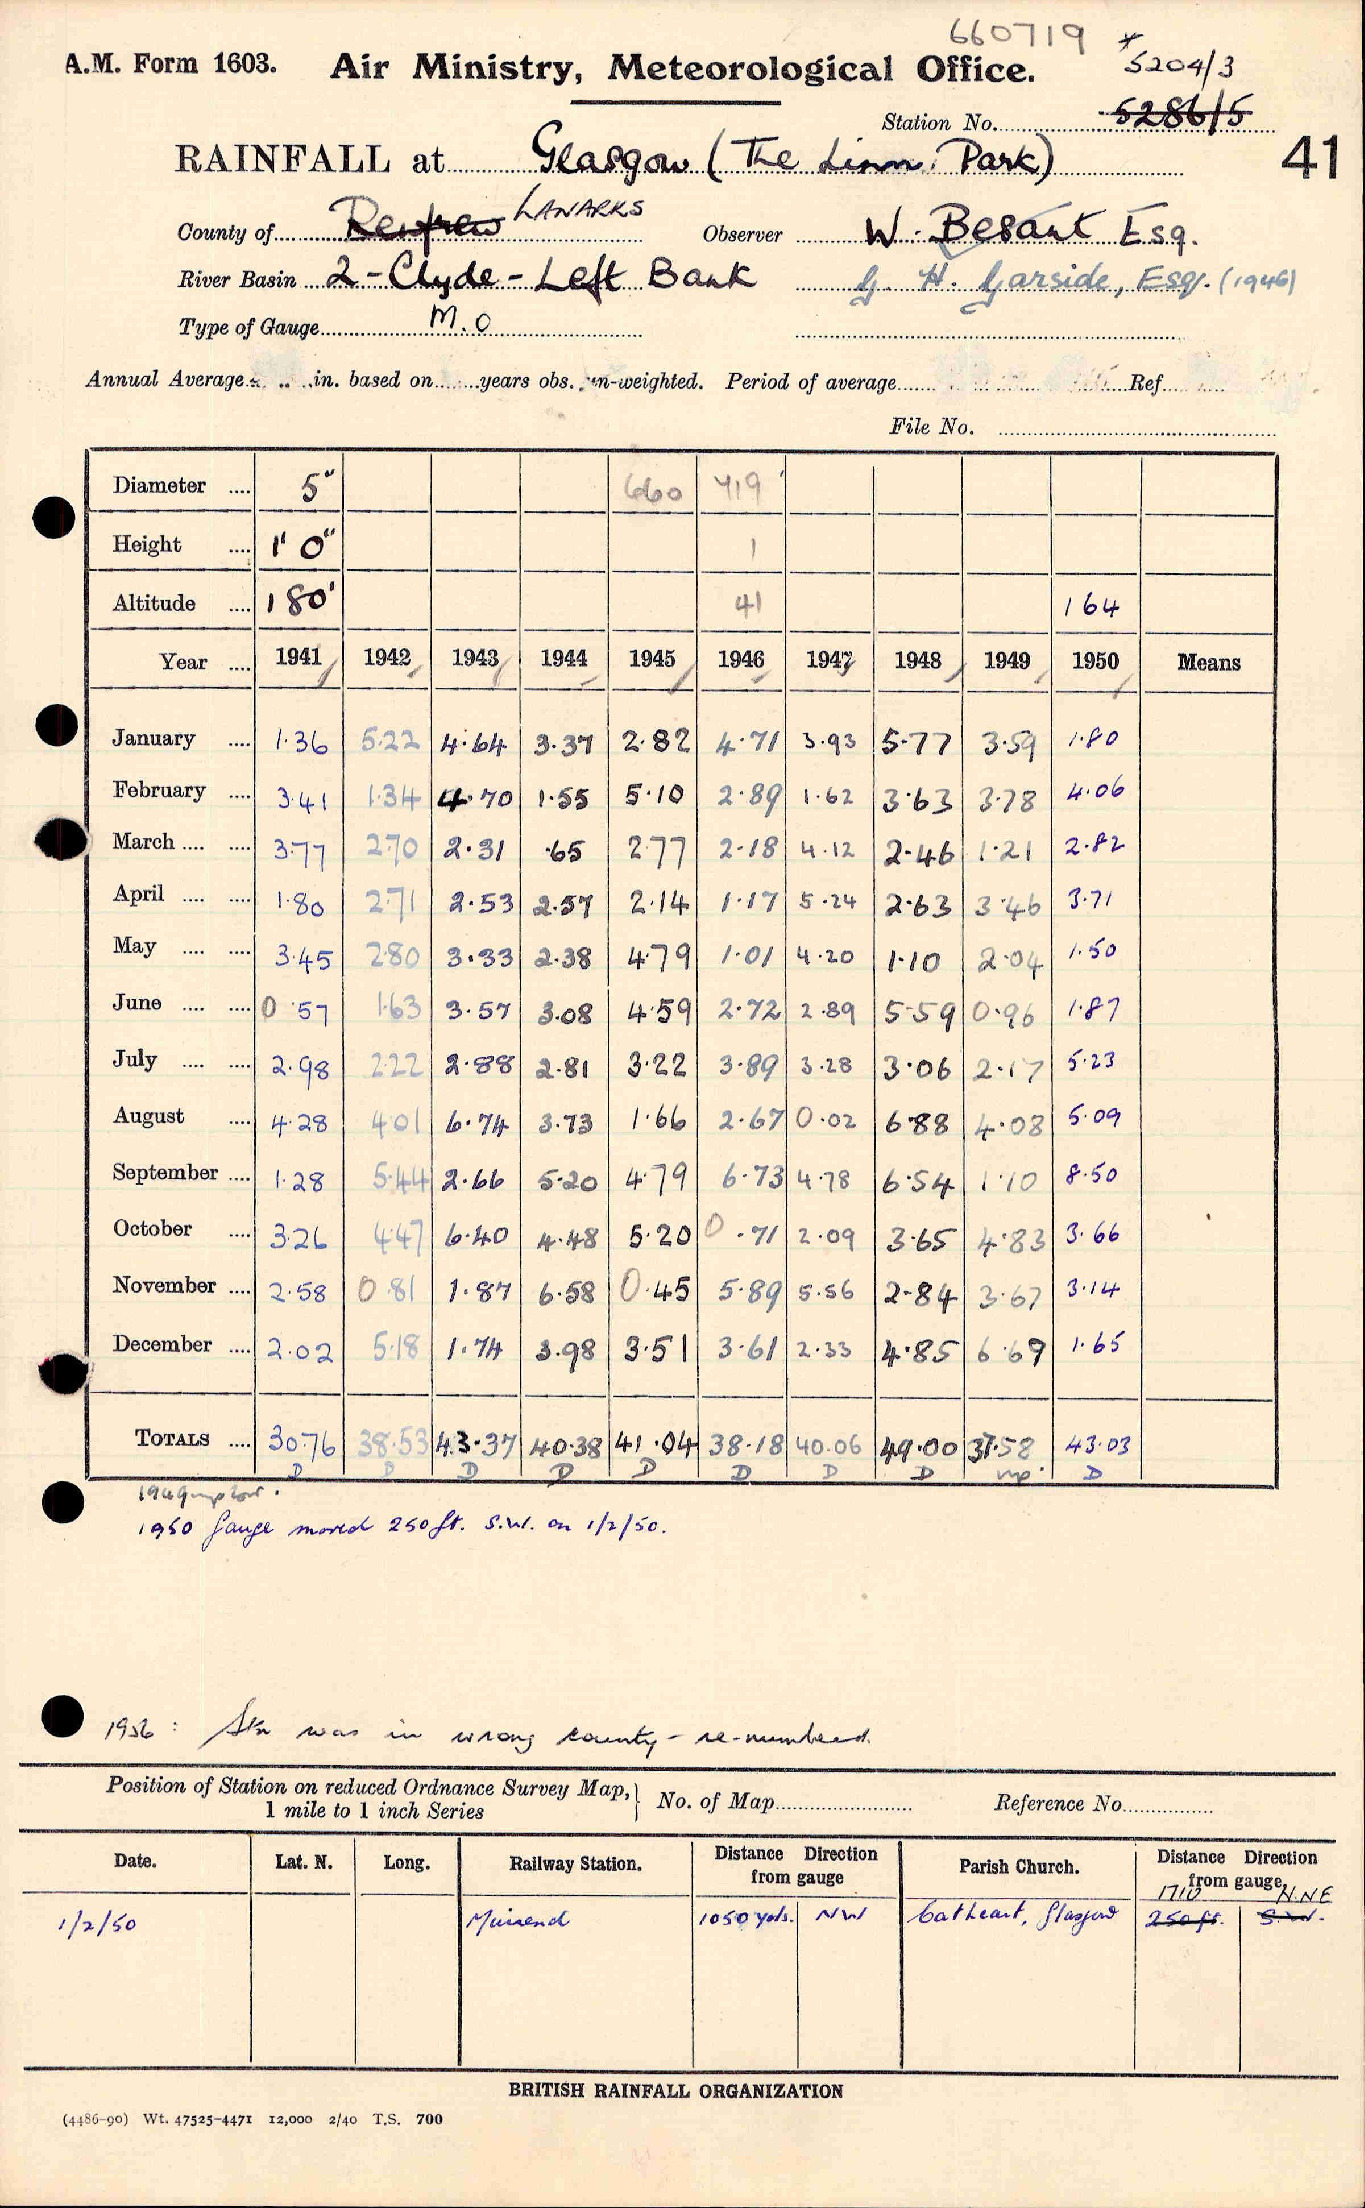 660719
A.M. Form 1603. Air Ministry, Meteorological Office. * 5204/3
Station No. 5286/5
RAINFALL at Glasgow (The Linn Park) 41
County of Renfrew LANARKS Observer W. Besant Esq.
River Basin 2-Clyde-Left Bank G. H. Garside, Esq. (1946)
Type of Gauge M.O
Annual Average in. based on years obs. un-weighted. Period of average Ref
File No.
Diameter 5" 660 719
Height 1' 0" 1
Altitude 180' 41 164
Year 1941 1942 1943 1944 1945 1946 1947 1948 1949 1950 Means
January 1.36 5.22 4.64 3.37 2.82 4.71 3.93 5.77 3.59 1.80
February 3.41 1.34 4.70 1.55 5.10 2.89 1.62 3.63 3.78 4.06
March 3.77 2.70 2.31 .65 2.77 2.18 4.12 2.46 1.21 2.82
April 1.80 2.71 2.53 2.57 2.14 1.17 5.24 2.63 3.46 3.71
May 3.45 2.80 3.33 2.38 4.79 1.01 4.20 1.10 2.04 1.50
June 0.57 1.63 3.57 3.08 4.59 2.72 2.89 5.59 0.96 1.87
July 2.98 2.22 2.88 2.81 3.22 3.89 3.28 3.06 2.17 5.23
August 4.28 4.01 6.74 3.73 1.66 2.67 0.02 6.88 4.08 5.09
September 1.28 5.44 2.66 5.20 4.79 6.73 4.78 6.54 1.10 8.50
October 3.26 4.47 6.40 4.48 5.20 0.71 2.09 3.65 4.83 3.66
November 2.58 0.81 1.87 6.58 0.45 5.89 5.56 2.84 3.67 3.14
December 2.02 5.18 1.74 3.98 3.51 3.61 2.33 4.85 6.69 1.65
TOTALS 30.76 38.53 43.37 40.38 41.04 38.18 40.06 49.00 37.58 43.03
D D D D D D D D mp. D
1949
1950 Gauge moved 250ft. S.W. on 1/2/50.
1956: Stn was in wrong county - re-numbered.
Position of Station on reduced Ordnance Survey Map, 1 mile to 1 inch Series No. of Map Reference No.
Date. Lat. N. Long. Railway Station. Distance Direction from gauge Parish Church. Distance Direction from gauge
1710 N.NE
1/2/50 Muirend 1050 yds. NW Cathcart, Glasgow 250 ft. S.W.
BRITISH RAINFALL ORGANIZATION
(4486-90) Wt. 47525-4471 12,000 2/40 T.S. 700